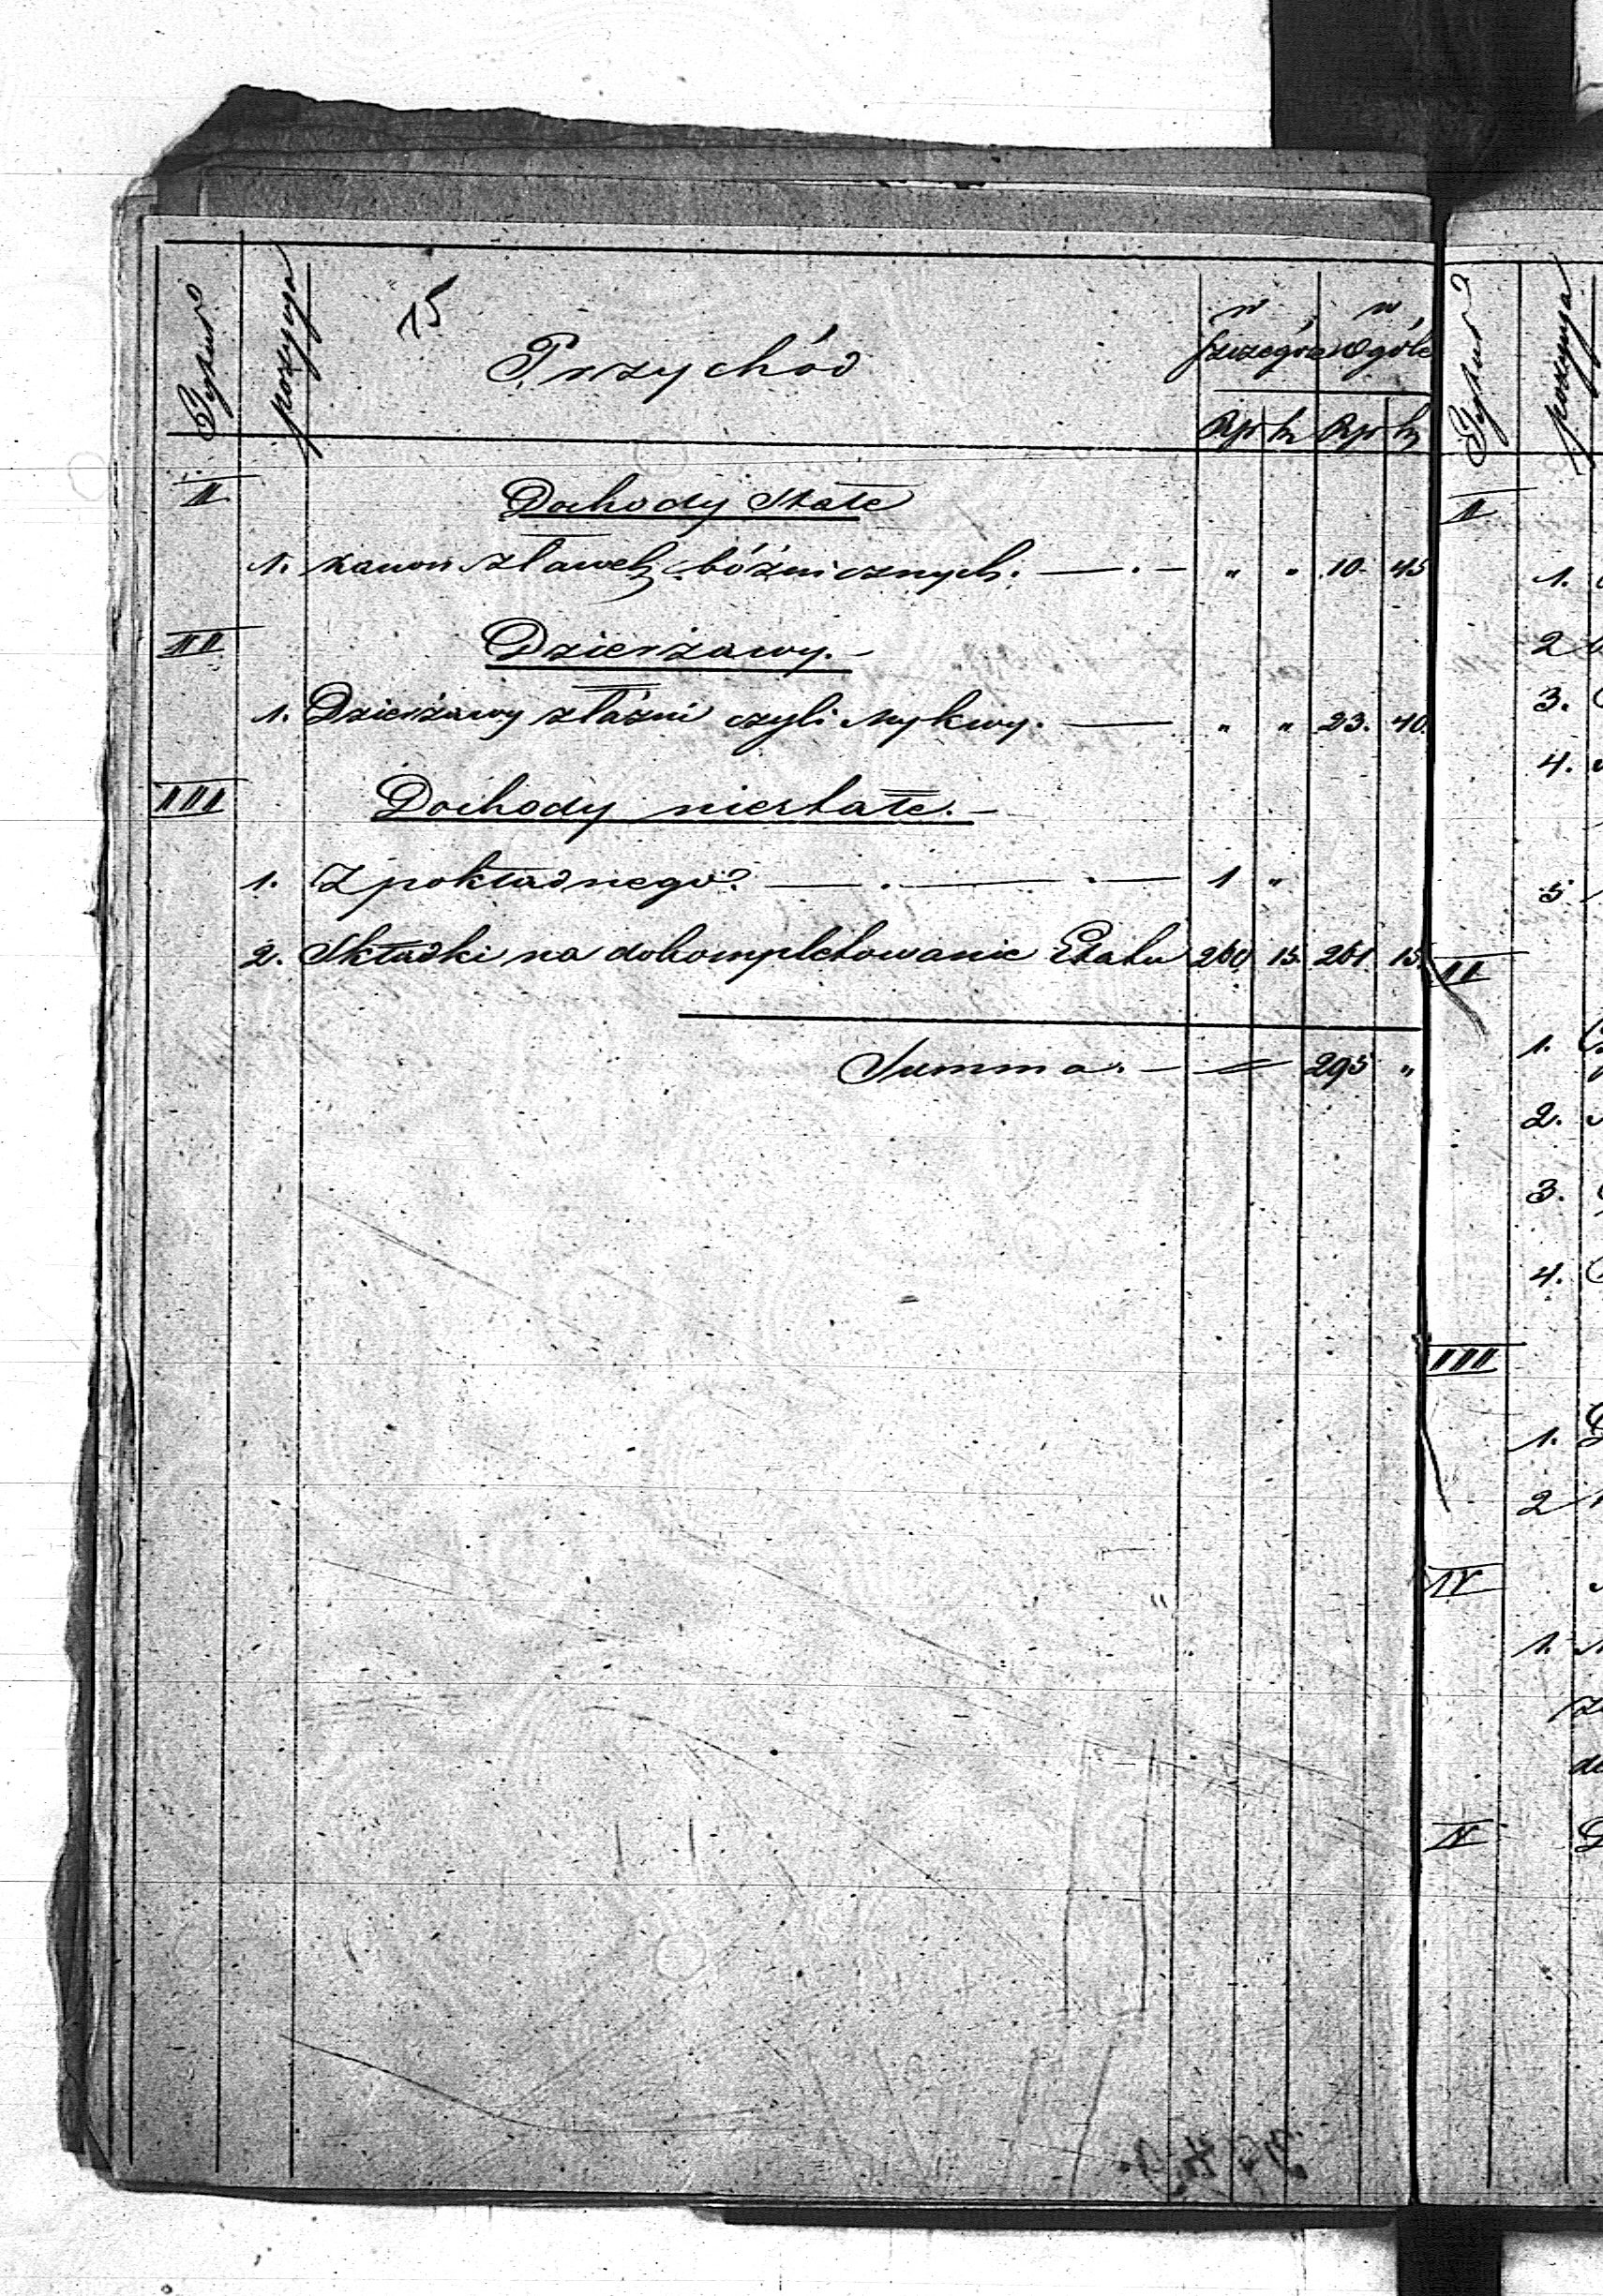 15
Tytuł pozycya Przychód w szczególe w ogóle
Rp k Rp k
I Dochody Stałe
1. Kanon z ławek bóżnicznych. — . — " " 10 45
II Dzierżawy. —
1. Dzierżawy z łaźni czyli Mykwy. — " " 23. 40.
III Dochody niestałe. —
1. Z pokładnego — . — . — 1 "
2. Składki na dokompletowanie Etatu 260 15. 261 15.
Summa. — 295 "
Tytuł pozycya
I
1.
2
3.
4.
5
II
1.
2.
3.
4.
III
1.
2
IV
1.
V